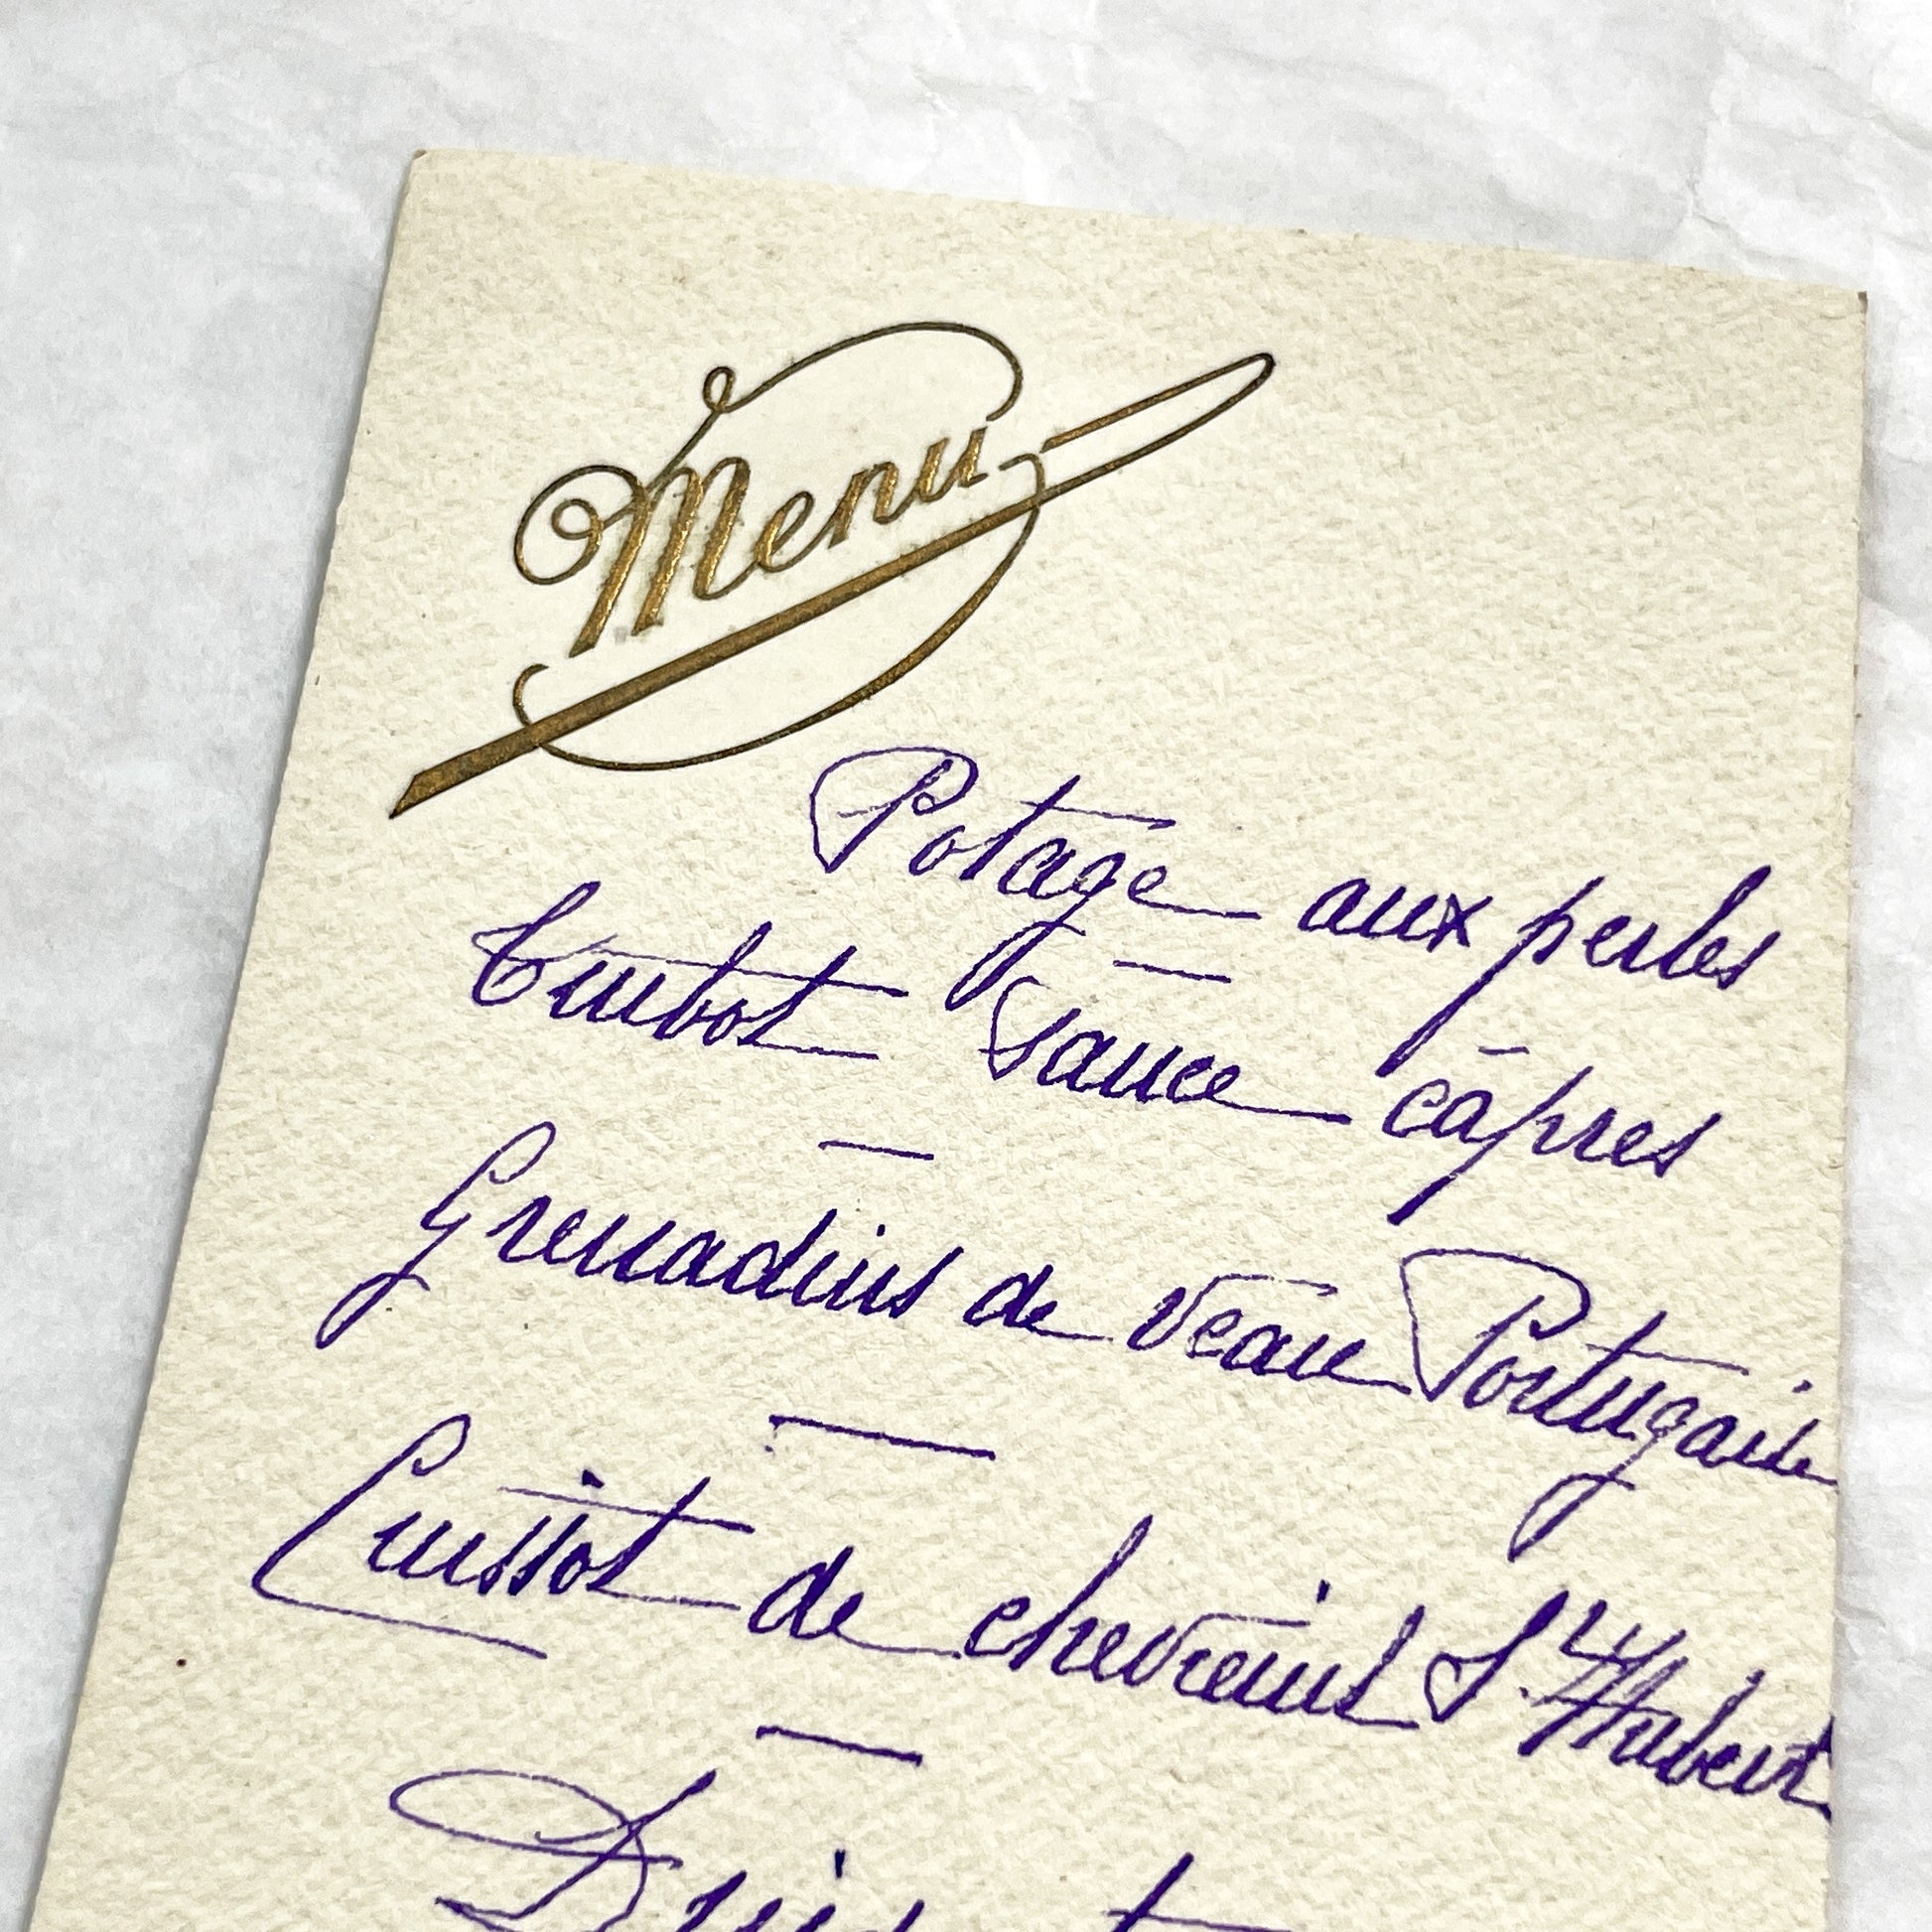 Menu
Potage aux perles
Turbot Sauce câpres
Grenadins de veau Portugaise
Cuissot de chevreuil St Hubert